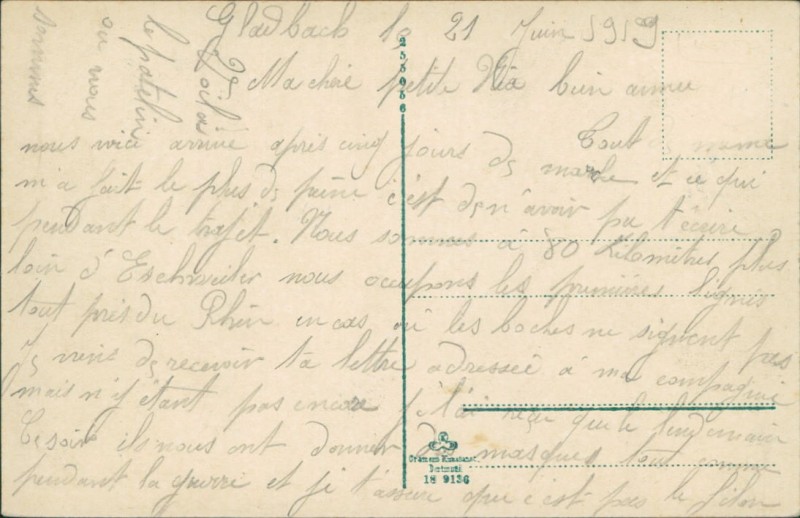 Gladbach le 21 Juin 1919
Ma chère petite bien aimée
Tout de meme
nous voici arrivé après cinq jours de marche et ce qui
m'a fait le plus de peine c'est de n'avoir pu t'écrire
pendant le trajet. Nous sommes à 80 Kilomètres plus
loin d'Eschweiler nous occupons les premières lignes
tout près du Rhin en cas où les boches ne signent pas
Je viens de recevoir ta lettre adressée à ma compagnie
mais n'y étant pas encore je l'ai reçu que le lendemain
Ce soir ils nous ont donner des masques tout comme
pendant la guerre et je t'assure que c'est pas le filon
Voilà
le patelin
ou nous
sommes
255056
Dortmund
18 9136